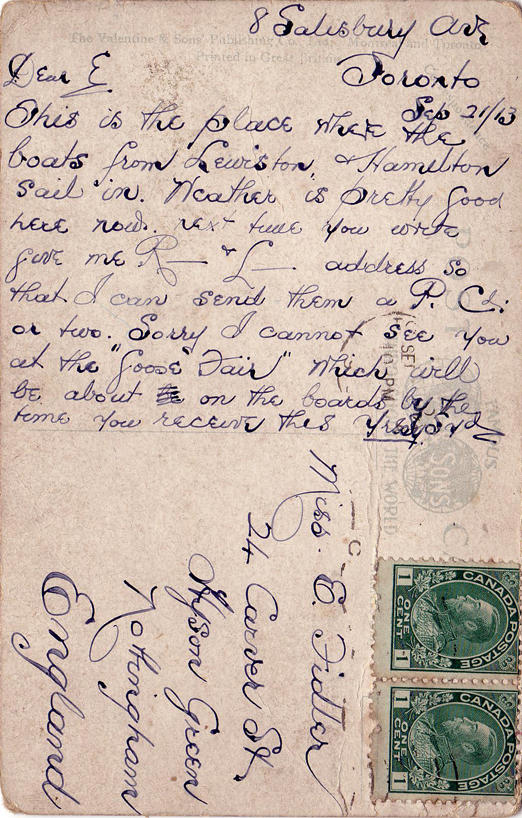 8 Salisbury Ave
The Valentine & Sons' Publishing Co. Ltd. Montreal and Toronto
Printed in Great Britain
Toronto
Sep 21/13
Dear E
This is the place where the
boats from Lewiston, & Hamilton
sail in. Weather is pretty good
here now. next time you write
give me R— & L— address so
that I can send them a P. Cd.
or two. Sorry I cannot see you
at the "Goose Fair" which will
be about on the boards by the
time you receive this
Miss. E. Fidler
24 Carver St.
Hyson Green
Nottingham
England
POST C
FAMOUS
THE WORLD
SONS
SE
PM
CANADA POSTAGE
1 ONE CENT 1
CANADA POSTAGE
1 ONE CENT 1